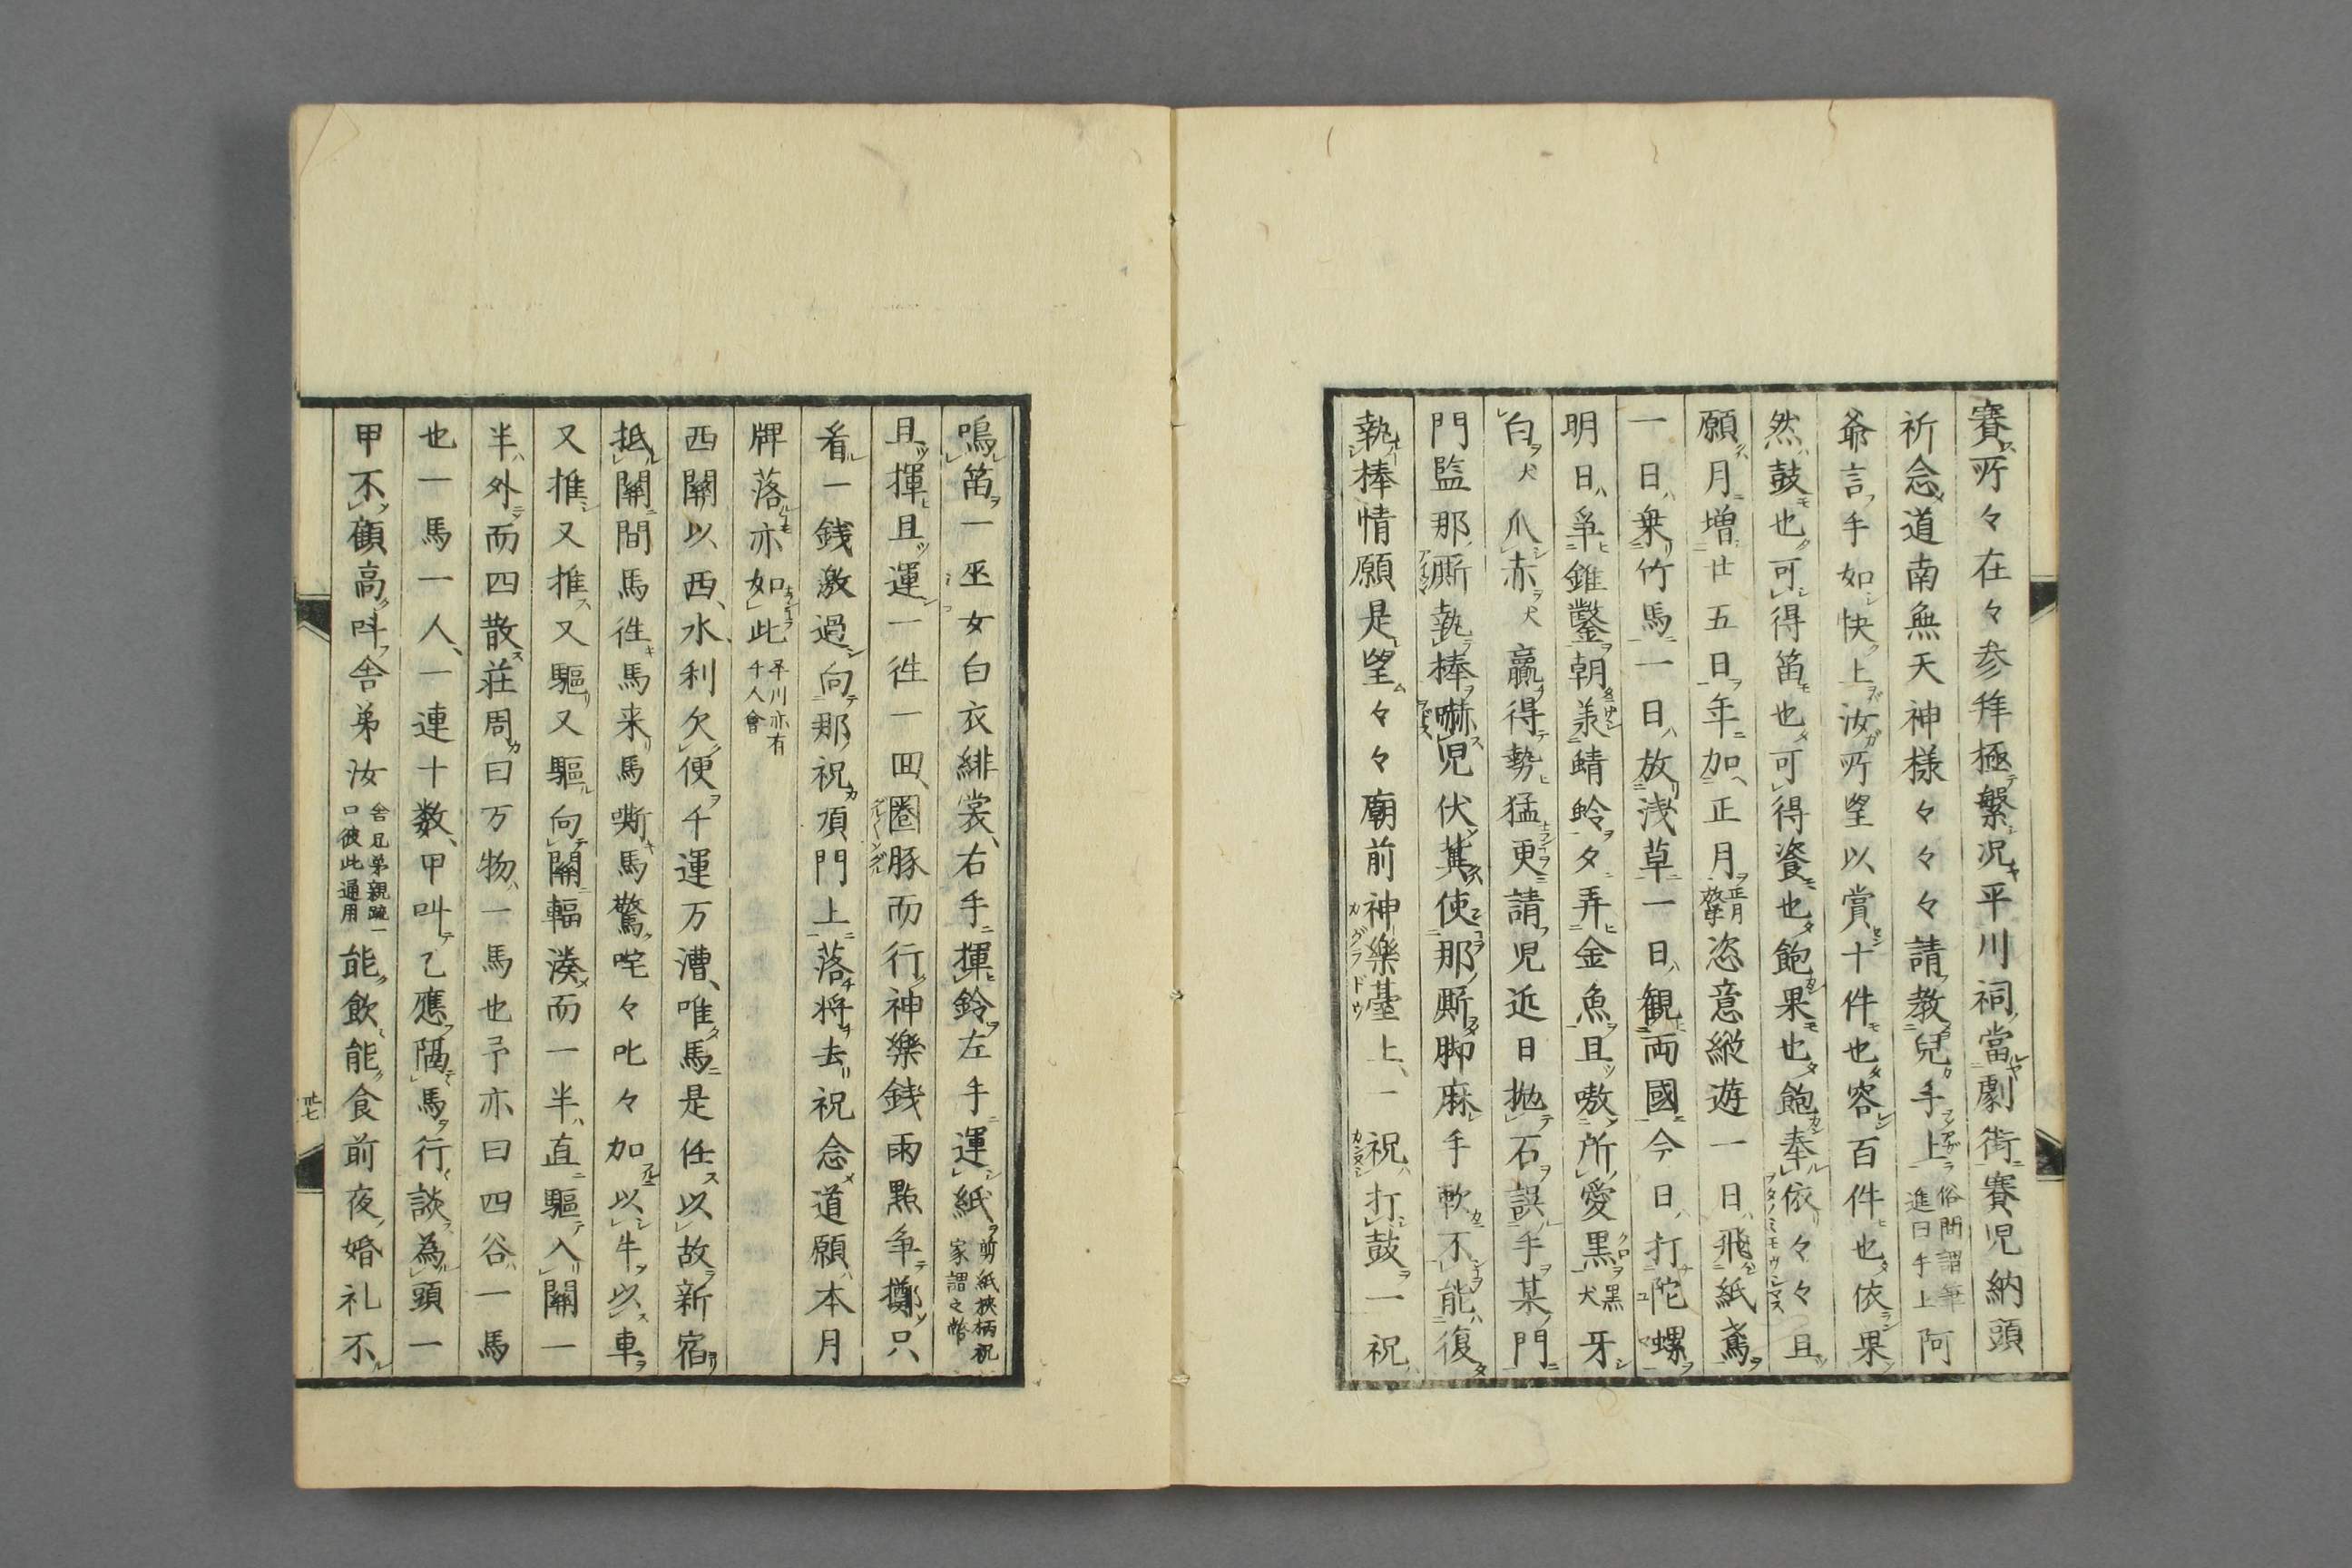 賽所々在々参拜極繁況平川祠當劇街賽児納頭
祈念道南無天神様々々々請教兒手上俗間謂筆進曰手上阿
爺言手如快上汝所望以賞十件也容百件也依果
然鼓也可得笛也可得瓷也飽果也飽奉依々々且
願月増廿五日年加正月正月擎恣意縦遊一日飛紙鳶
一日乗竹馬一日放浅草一日観両國今日打陀螺
明日爭錐鑿朝羨鯖鈴夕弄金魚且嗷所愛黒黒犬牙
白犬爪赤犬贏得勢猛更請児近日拋石誤手某門
門監那厮執棒嚇児伏冀使那厮脚麻手軟不能復
執棒情願是望々々廟前神樂臺上一祝打鼓一祝
鳴笛一巫女白衣緋裳右手揮鈴左手運紙剪紙挾柄祝家謂之幣
且揮且運一徃一回圈豚而行神樂銭雨點争擲只
看一銭激過向那祝頂門上落将去祝念道願本月
牌落亦如此平川亦有千人會
西關以西水利欠便千運万漕唯馬是任以故新宿
抵關間馬徃馬来馬嘶馬驚咤々叱々加以牛以車
又推又推又驅又驅向關輻湊而一半直驅入關一
半外而四散莊周曰万物一馬也予亦曰四谷一馬
也一馬一人一連十数甲叫乙應隔馬行談為頭一
甲不顧高呌舎弟汝舎兄弟親疏一口彼此通用能飲能食前夜婚礼不
廿七